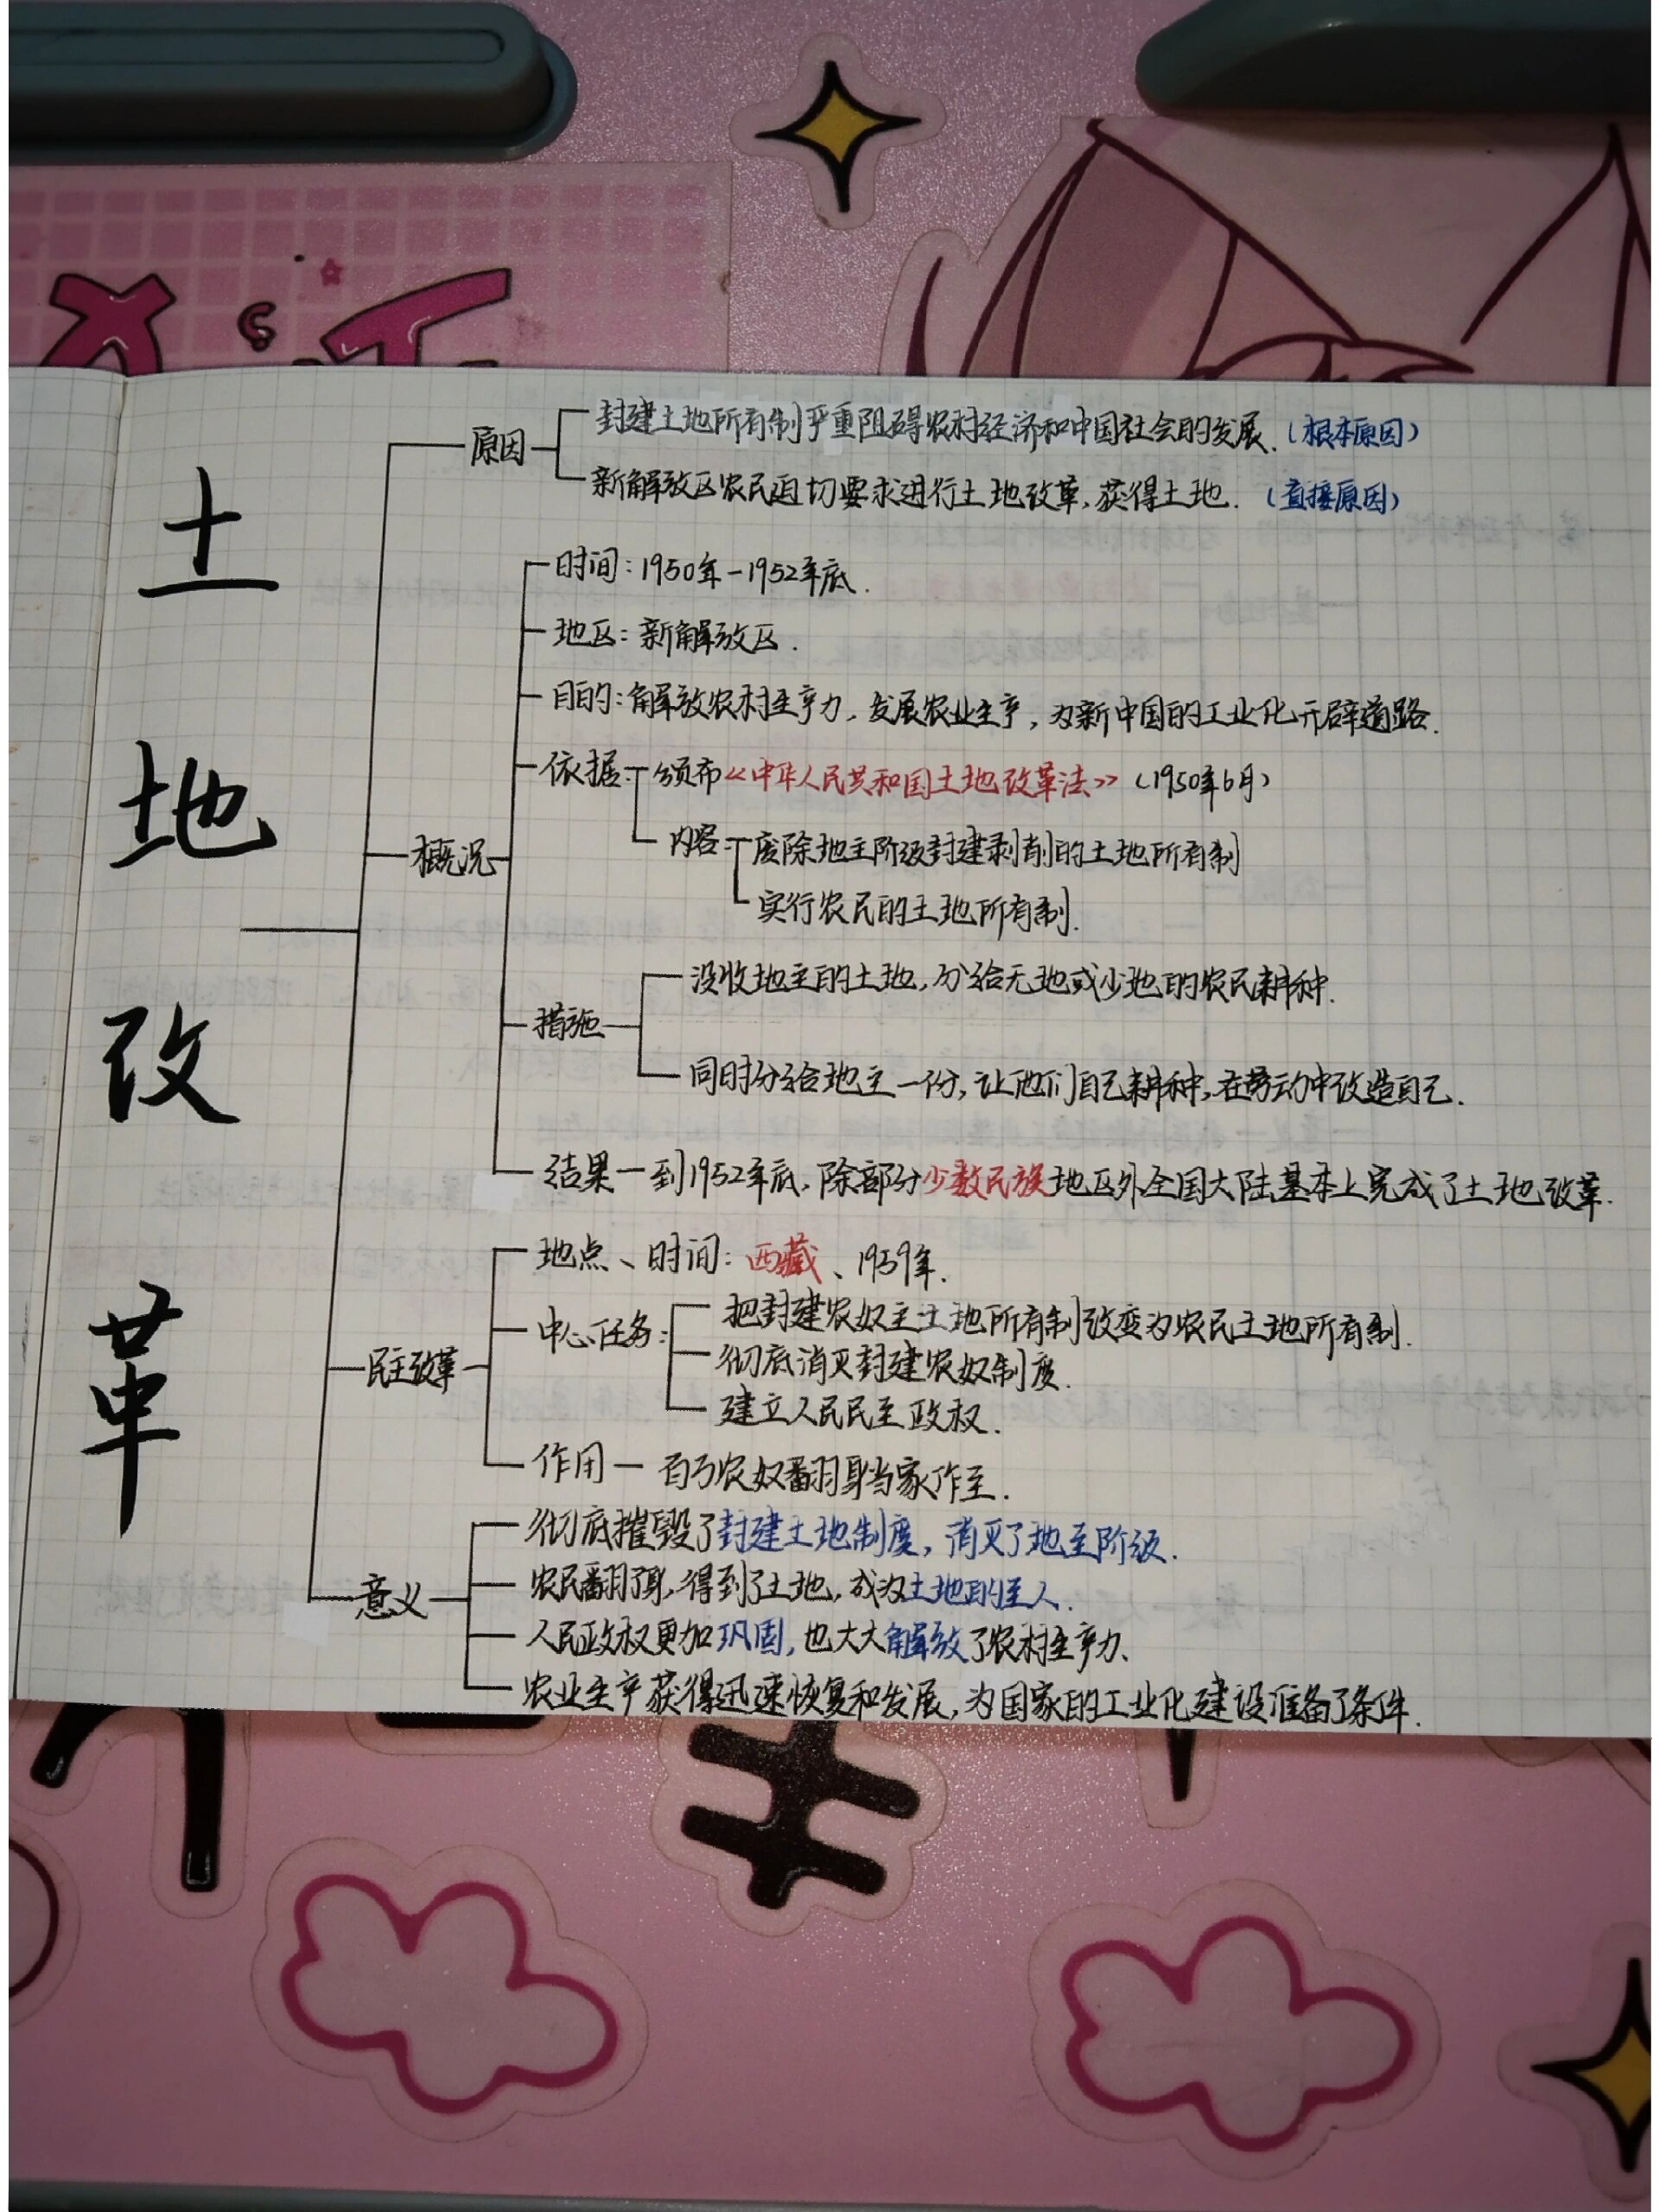 土地改革
原因
封建土地所有制严重阻碍农村经济和中国社会的发展.(根本原因)
新解放区农民迫切要求进行土地改革,获得土地.(直接原因)
概况
时间:1950年-1952年底.
地区:新解放区.
目的:解放农村生产力,发展农业生产,为新中国的工业化开辟道路.
依据:颁布《中华人民共和国土地改革法》(1950年6月)
内容:废除地主阶级封建剥削的土地所有制
实行农民的土地所有制.
措施
没收地主的土地,分给无地或少地的农民耕种.
同时分给地主一份,让他们自己耕种,在劳动中改造自己.
结果—到1952年底,除部分少数民族地区外全国大陆基本上完成了土地改革.
民主改革
地点、时间:西藏、1959年.
中心任务:
把封建农奴主土地所有制改变为农民土地所有制.
彻底消灭封建农奴制度.
建立人民民主政权.
作用—百万农奴翻身当家作主.
意义
彻底摧毁了封建土地制度,消灭了地主阶级.
农民翻了身,得到了土地,成为土地的主人.
人民政权更加巩固,也大大解放了农村生产力、
农业生产获得迅速恢复和发展,为国家的工业化建设准备了条件.